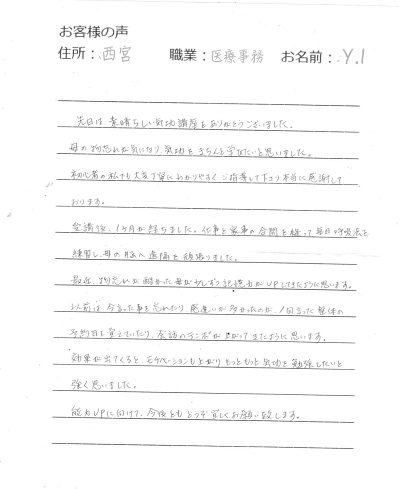 お客様の声
住所：西宮　職業：医療事務　お名前：Y.I
先日は、素晴らしい気功講座をありがとうございました。
母の物忘れが気になり、気功をきちんと学びたいと思いました。
初心者の私でも大変丁寧にわかりやすくご指導して下さり本当に感謝して
おります。
受講後、1ヶ月が経ちました。仕事と家事の合間を縫って毎日呼吸法を
練習し、母の脳へ遠隔を頑張りました。
最近、物忘れが酷かった母が少しずつ記憶力がUPしてきたように思います。
以前は、今言った事を忘れたり、勘違いが多かったのが、1回言った整体の
予約日を覚えていたり、会話のテンポが上がってきたように思います。
効果が出てくると、モチベーションも上がり、もっともっと気功を勉強したいと
強く思いました。
能力UPに向けて、今後ともどうぞ宜しくお願い致します。